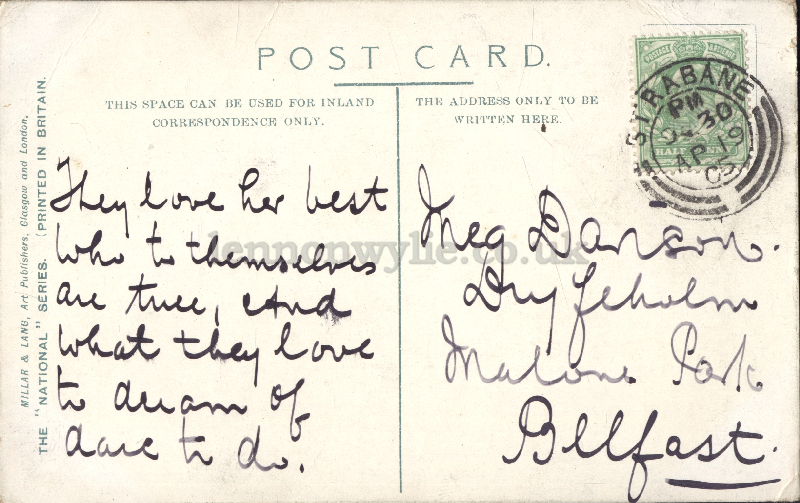 POST CARD.
THIS SPACE CAN BE USED FOR INLAND
CORRESPONDENCE ONLY.
THE ADDRESS ONLY TO BE
WRITTEN HERE.
MILLAR & LANG, Art Publishers, Glasgow and London.
THE "NATIONAL" SERIES. (PRINTED IN BRITAIN.
They love her best
who to themselves
are true, And
what they love
to dream of
dare to do.
Meg
Malone Park
Bellfast.
POSTAGE & REVENUE
HALF PENNY
STRABANE
PM
30
AP 19
05
lennonwylie.co.uk